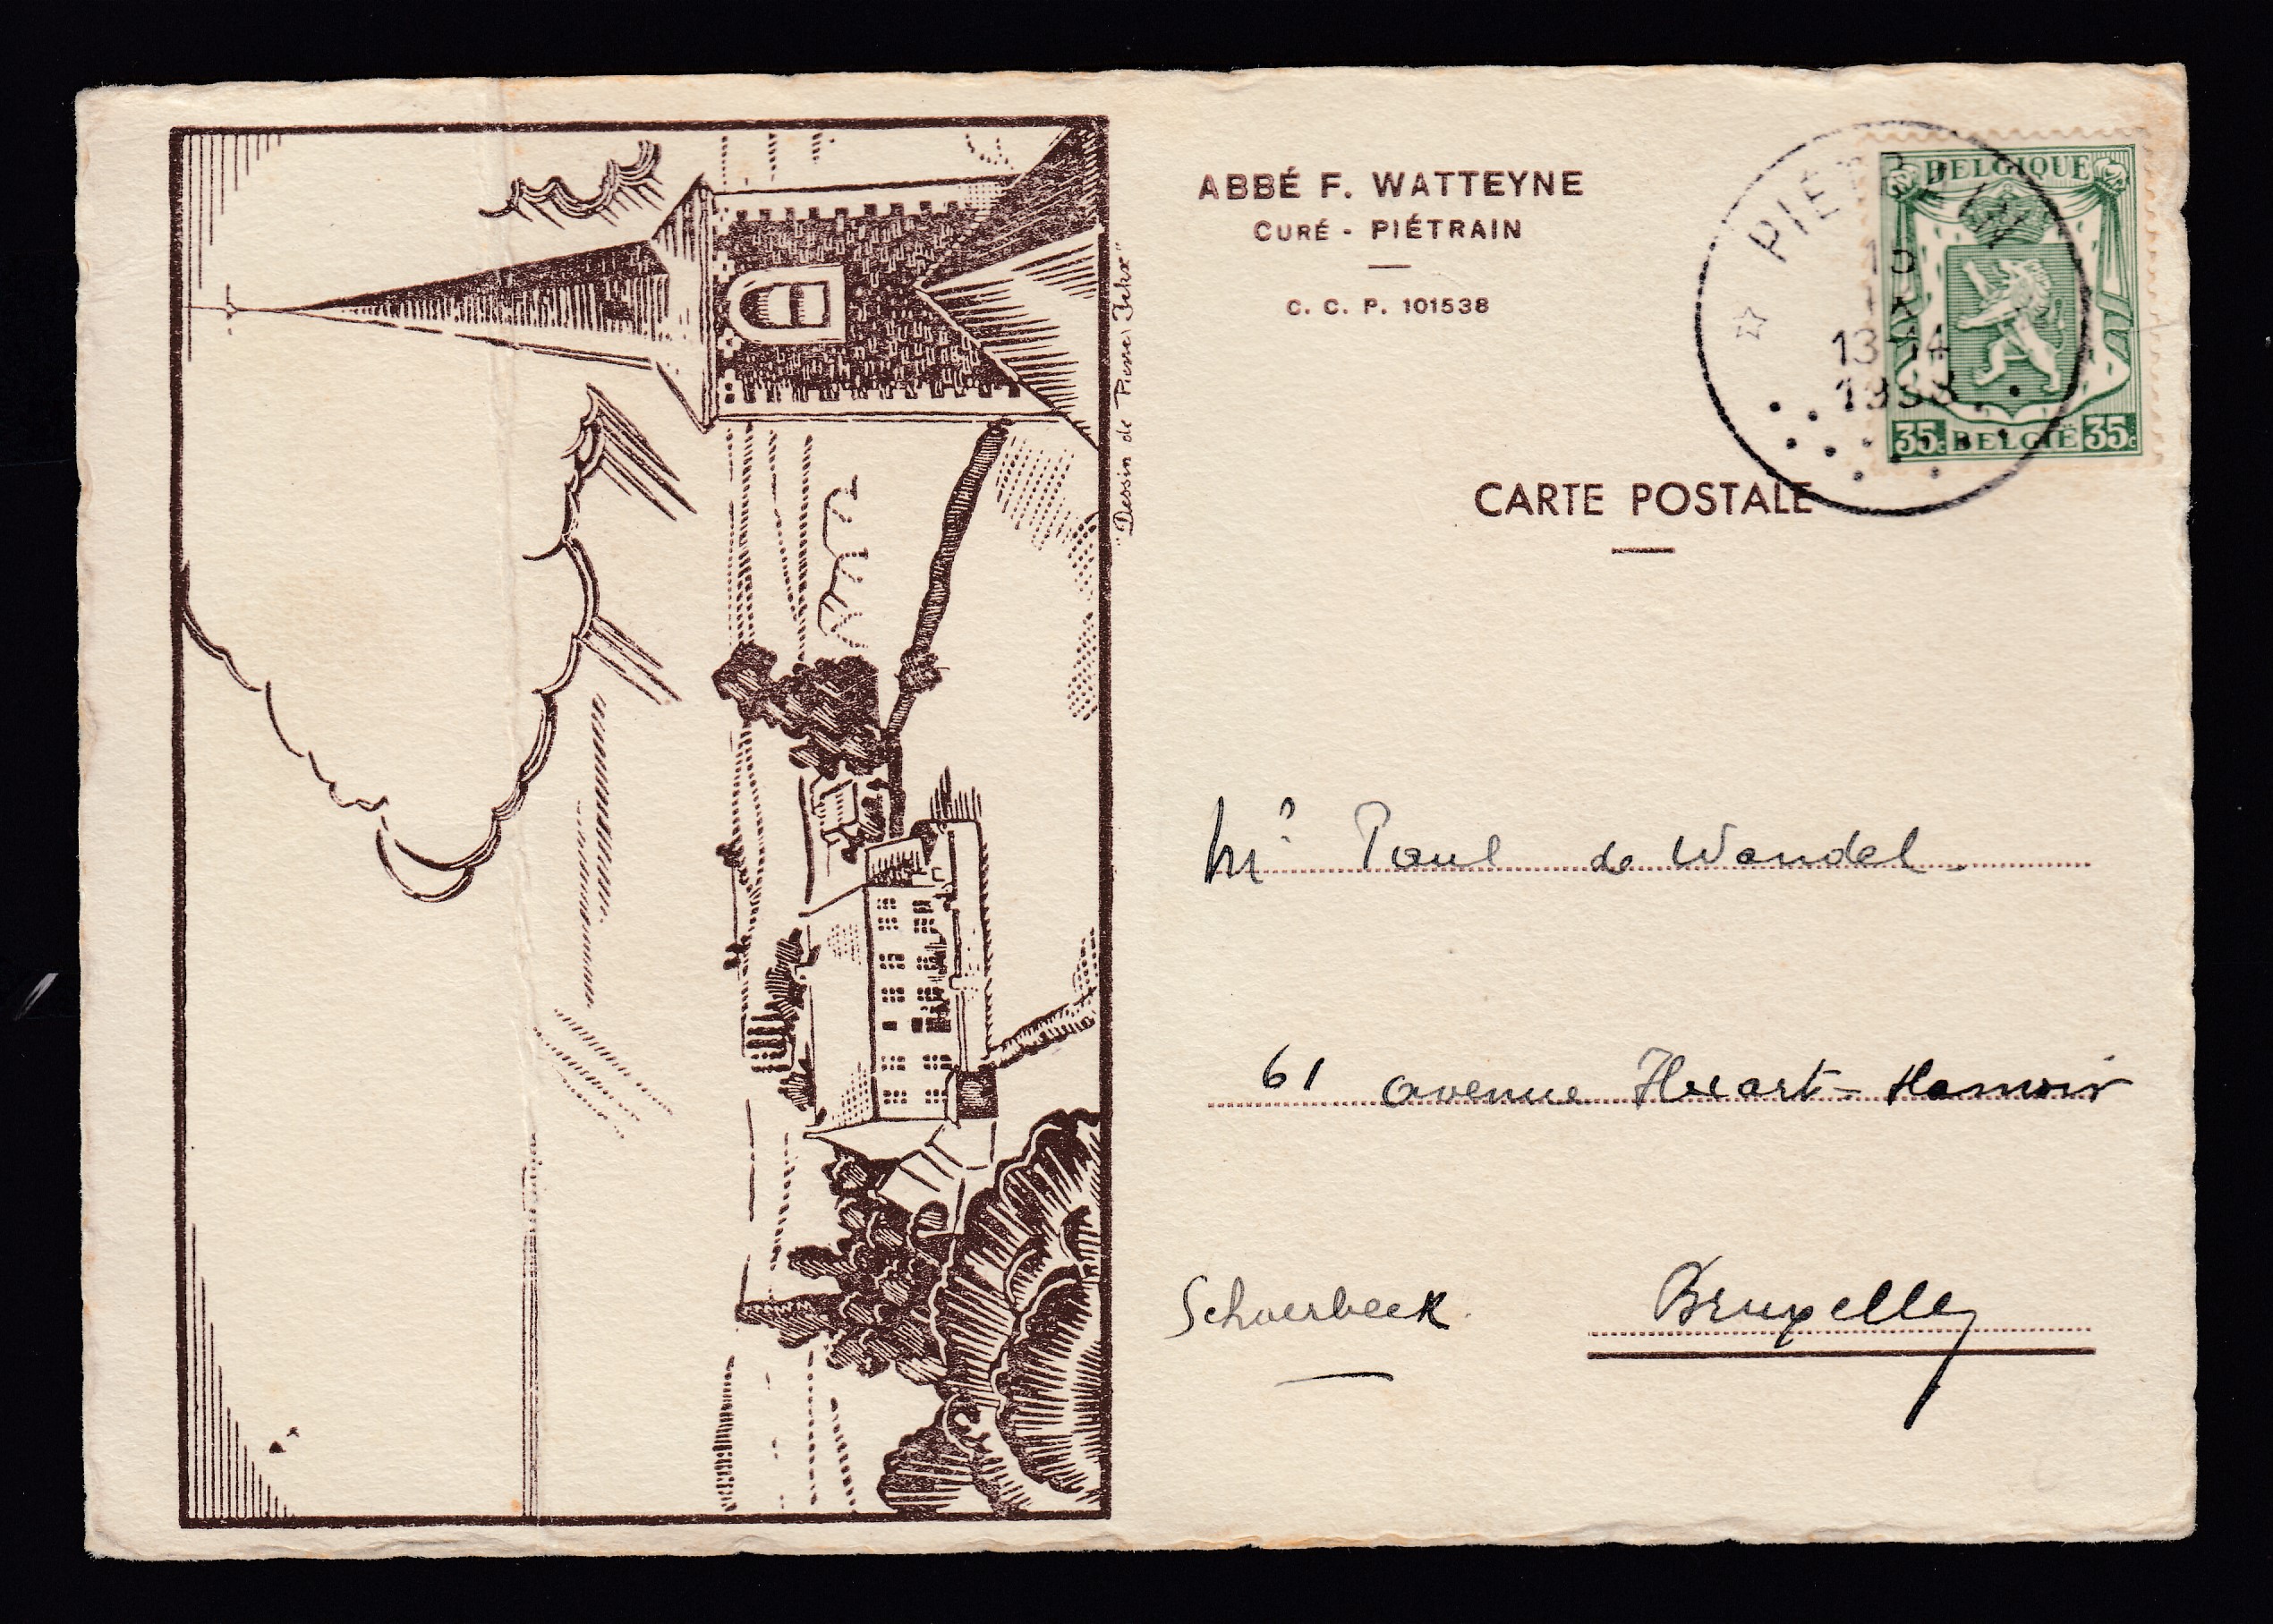 ABBÉ F. WATTEYNE
CURÉ - PIÉTRAIN
C. C. P. 101538
PIÉTRAIN
13-14
1938
BELGIQUE
35c BELGIË 35c
CARTE POSTALE
"Dessin de Pierre
Mr Paul de Wandel
61 avenue Huart-Hamoir
Schaerbeek
Bruxelles